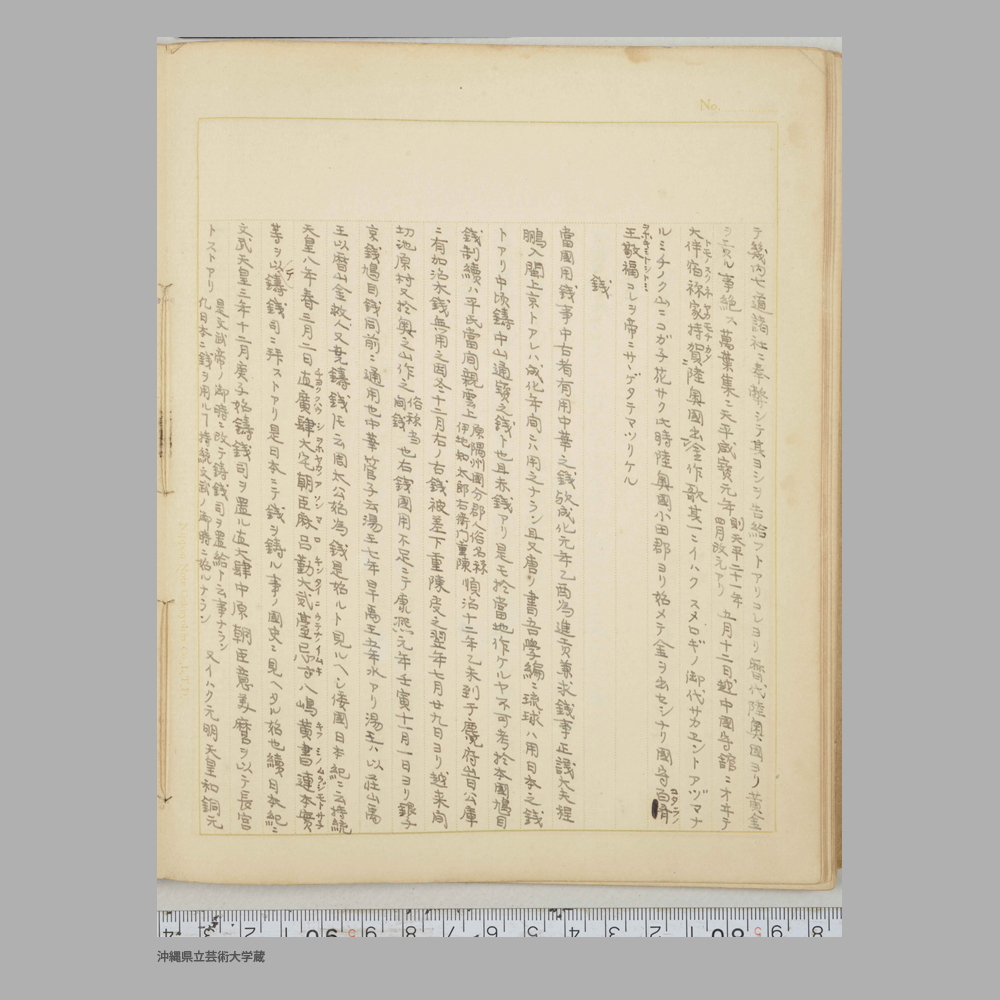 No.
テ幾内七道諸社ニ奉幣シテ其ヨシヲ告給フトアリコレヨリ歴代陸奥国ヨリ黄金
ヲ貢ル事絶ス 萬葉集ニ天平感寳元年 則天平二十一年四月改元アリ 五月十二日越中國守舘ニオヰテ
大伴宿祢家持賀陸奥國出金作歌其一ニイハク スメロギノ御代サカヱントアヅマナ
ルミチノク山ニコガネ花サク此時陸奥國小田郡ヨリ始メテ金ヲ出セシナリ國守百済
王敬福コレヲ帝ニサンゲタテマツリケル
錢
當國用錢事中古者有用中華之錢欤成化元年乙酉為進貢兼求錢事正議大夫程
鵬入閩上京トアレハ成化年間ニハ用之ナラン且又唐ノ書吾學編ニ琉球ハ用日本之錢
トアリ中頃鋳中山通寳之錢ト也且末錢アリ是モ於當地作ケルヤ不可考於本國鳩目
錢制續ハ平氏當間親雲上 原隅州國分郡人俗名称伊地知太郎右衛門重陳 順治十三年乙未到于麑府昔日公庫
ニ有加治木錢無用之因冬十二月右ノ古錢被差下重陳受之翌年七月廿九日ヨリ越来間
切池原村又於奥之山作之 俗称当間錢 也右錢國用不足ニテ康熈元年壬寅十一月一日ヨリ銀子
京錢鳩目錢同前ニ通用也中華管子云湯王七年旱禹王五年水アリ湯王ハ以荘山禹
王以暦山金救人又堯鋳錢氏云周太公始為錢是始ルト見ルヘシ倭國日本紀ニ云持統
天皇八年春三月二日直廣肆大宅朝臣麻呂勤大貳臺忌寸八嶋黄書連本實
等ヲ以テ鋳錢司ニ拜ストアリ是日本ニテ錢ヲ鋳ル事ノ國史ニ見ヘタル始也續日本紀ニ
文武天皇三年十二月庚子始鋳錢司ヲ置ル直大肆中原朝臣意美麿ヲ以テ長官
トストアリ 是文武帝ノ御時ニ改テ鋳錢司ヲ置給ト云事ナラン凡日本ニ錢ヲ用ルヿ持統文武ノ御時ニ始ルナラン 又イハク元明天皇和銅元
沖縄県立芸術大学蔵